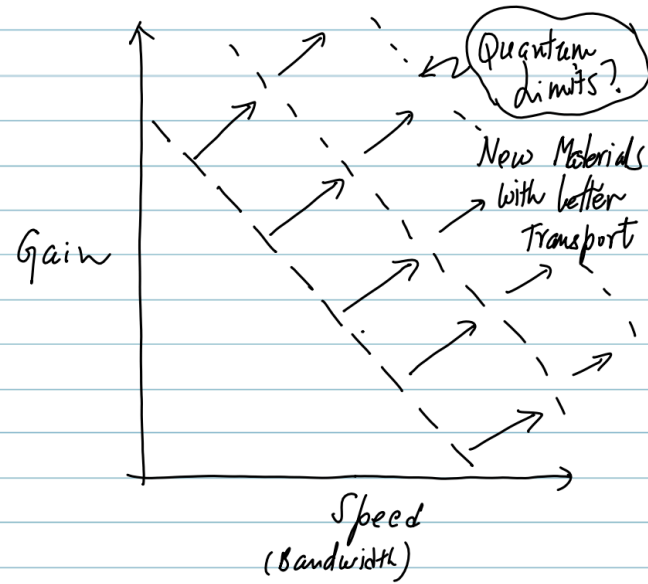 Quantum
Limits?
New Materials
with better
Transport
Gain
Speed
(Bandwidth)